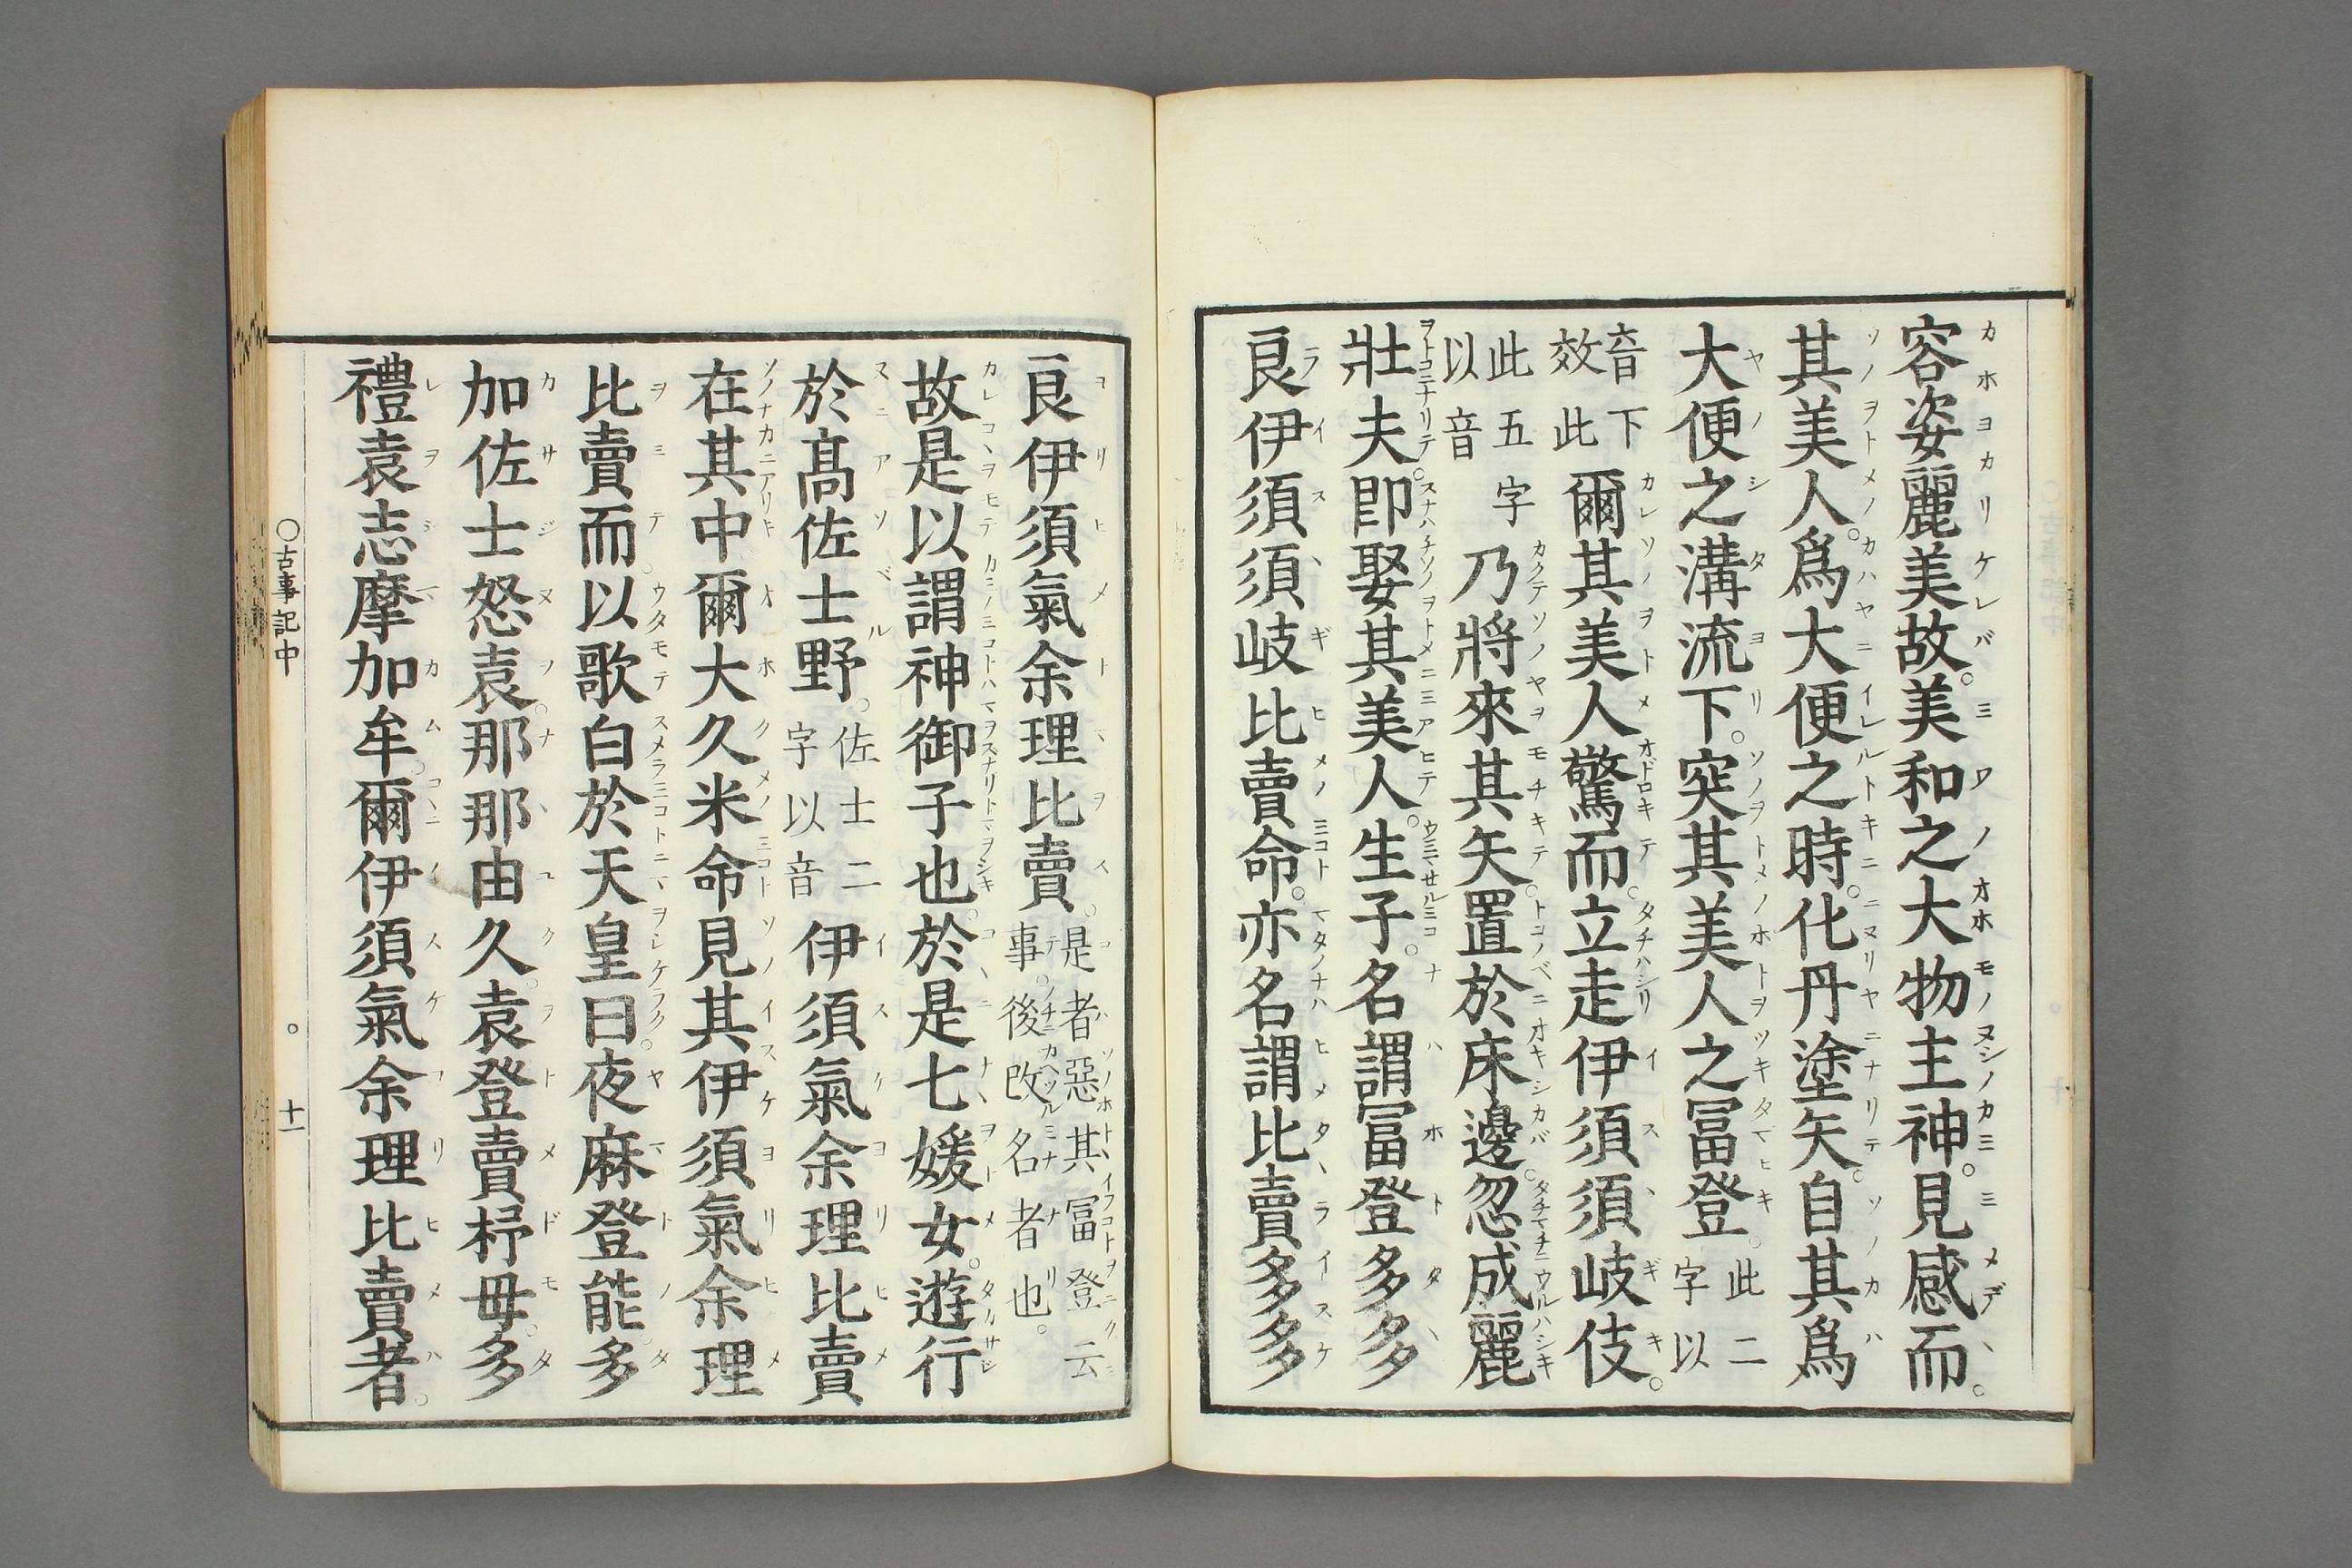 容姿麗美故。美和之大物主神。見感而。
其美人。爲大便之時。化丹塗矢。自其爲
大便之溝流下。突其美人之冨登。此二字以
音下效此爾其美人驚而。立走伊須須岐伎。
此五字以音乃將來其矢。置於床邊。忽成麗
壯夫。即娶其美人。生子。名謂冨登多多
良伊須須岐比賣命。亦名謂比賣多多
良伊須氣余理比賣。是者惡其冨登云事。後改名者也。
故是以謂神御子也。於是七媛女。遊行
於髙佐士野。佐士二字以音伊須氣余理比賣
在其中爾大久米命見其伊須氣余理
比賣而。以歌白於天皇曰。夜麻登能。多
加佐士怒袁。那那由久。袁登賣杼毋。多
禮袁志摩加牟。爾伊須氣余理比賣者。
〇古事記中 。 十一